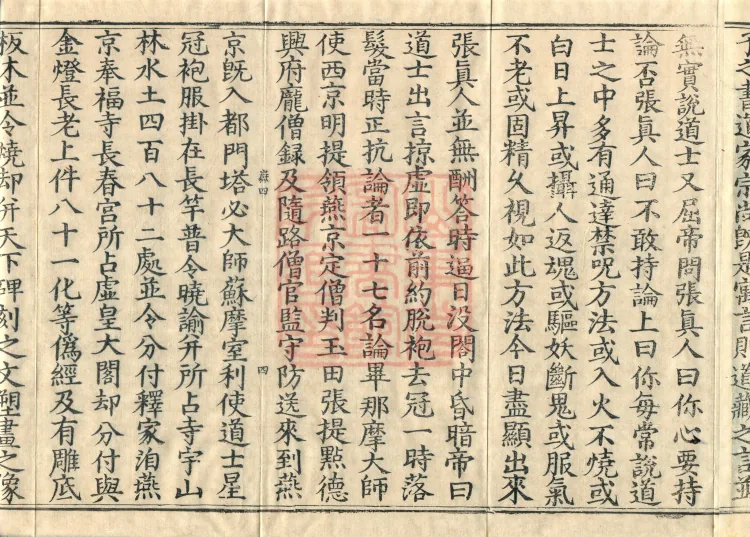 子之書道家宗尚旣是寓言則道藏之言並
無實說道士又屈帝問張眞人曰你心要持
論否張眞人曰不敢持論上曰你每常說道
士之中多有通達禁呪方法或入火不燒或
白日上昇或攝人返魂或驅妖斷鬼或服氣
不老或固精久視如此方法今日盡顯出來
張眞人並無酬答時逼日没閣中昏暗帝曰
道士出言掠虛即依前約脫袍去冠一時落
髮當時正抗論者一十七名論畢那摩大師
使西京明提領燕京定僧判玉田張提點德
興府龐僧録及隨路僧官監守防送來到燕
四
京旣入都門塔必大師蘇摩室利使道士星
冠袍服掛在長竿普令曉諭幷所占寺宇山
林水土四百八十二處並令分付釋家洎燕
京奉福寺長春宮所占虛皇大閣却分付與
金燈長老上件八十一化等僞經及有雕底
板木並令燒却幷天下碑刻之文塑畫之像